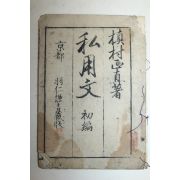 槙村正直著
私用文 初編
京都